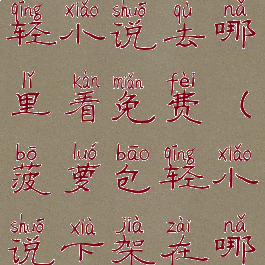 qīng xiǎo shuō qù nǎ
轻小说去哪
lǐ kàn miǎn fèi
里看免费（
bō luó bāo qīng xiǎo
菠萝包轻小
shuō xià jià zài nǎ
说下架在哪